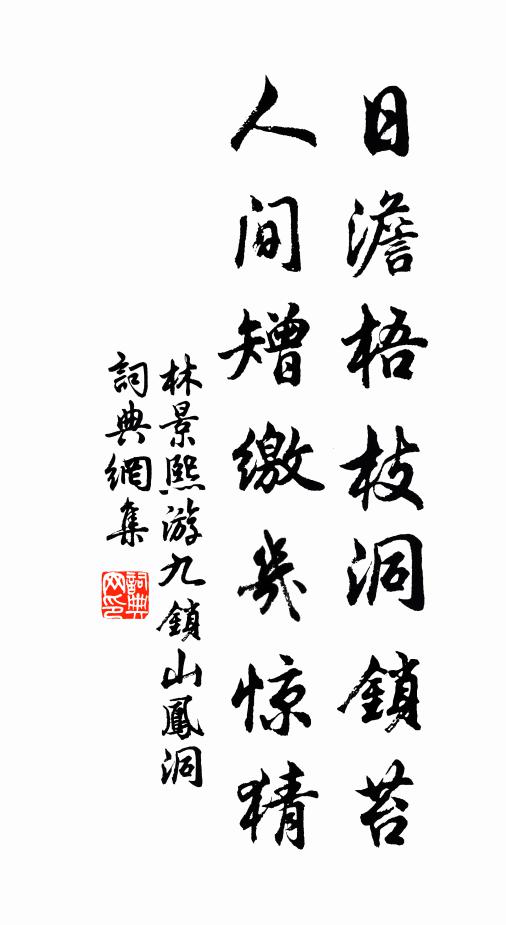 日澹梧枝洞鎖苔
人间矰缴幾惊猜
林景熙游九鎖山鳳洞
詞典網集
詞典网印